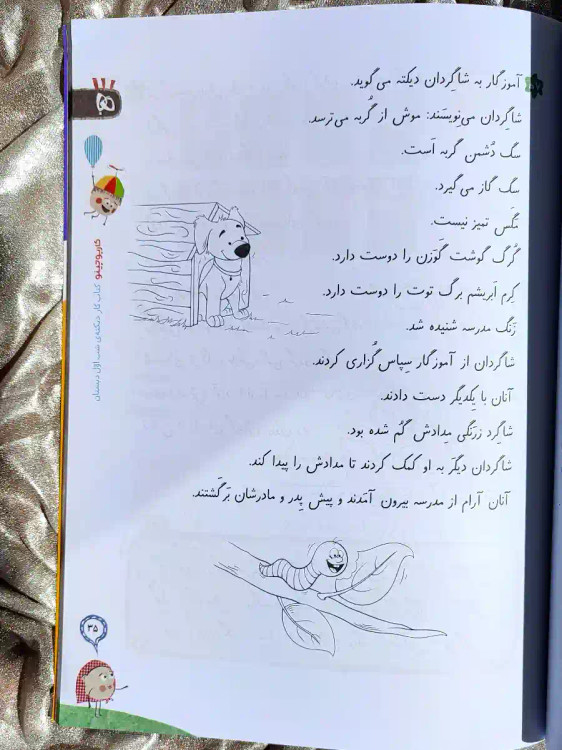 آموزگار به شاگِردان دیکته می‌گوید.
شاگِردان می‌نِویسَند: موش از گُربه می‌ترسد.
سگ دُشمن گربه اَست.
سگ گاز می‌گیرد.
مگَس تمیز نیست.
گُرگ گوشت گَوَزن را دوست دارد.
کِرم اَبریشم برگ توت را دوست دارد.
زَنگ مدرسه شنیده شد.
شاگردان از آموزگار سِپاس گُزاری کردند.
آنان با یِکدیگر دست دادند.
شاگِرد زرَنگی مِدادش گُم شده بود.
شاگردان دیگَر به او کمک کردند تا مدادش را پیدا کند.
آنان آرام از مدرسه بیرون آمَدند و پیش پِدر و مادرشان بَرگَشتند.
کارپوچینو کتاب کار دیکته‌ی شب اول دبستان
۳۵